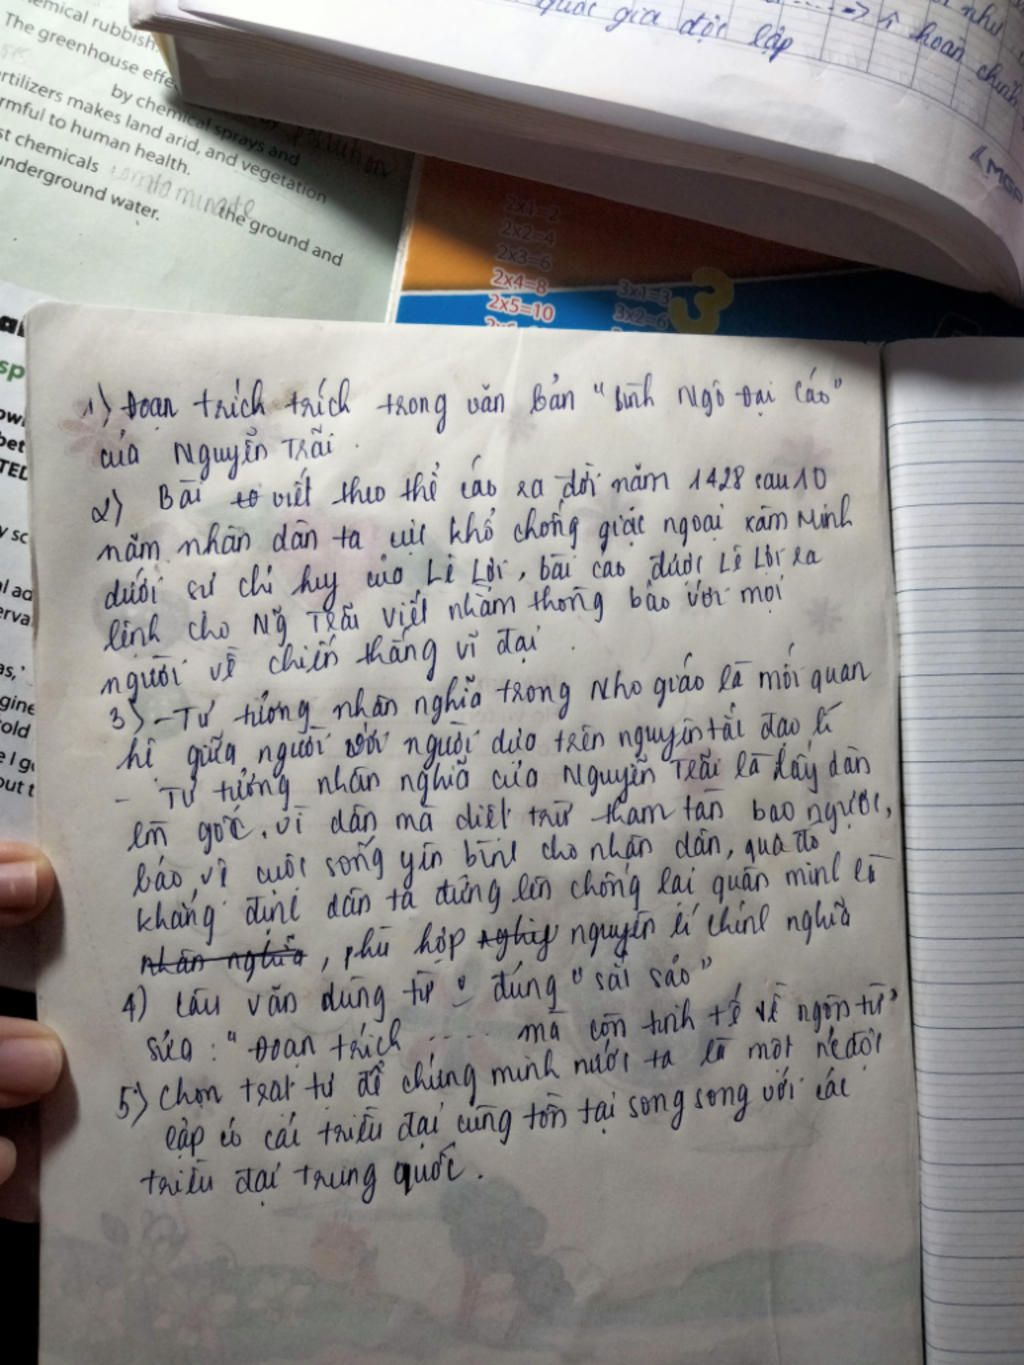 emical rubbish.
The greenhouse effe
by chemical sprays and
rtilizers makes land arid, and vegetation
rmful to human health.
st chemicals contaminate the ground and
underground water.
quốc gia độc lập
như
hoàn chỉnh
2x1=2
2x2=4
2x3=6
2x4=8
2x5=10
3x1=3
3x2=6
3
1) Đoạn trích trích trong văn bản "Bình Ngô Đại Cáo"
của Nguyễn Trãi.
2) Bài to viết theo thể cáo ra đời năm 1428 sau 10
năm nhân dân ta cực khổ chống giặc ngoại xâm Minh
dưới sự chỉ huy của Lê Lợi, bài cáo được Lê Lợi ra
lệnh cho Ng Trãi viết nhằm thông báo với mọi
người về chiến thắng vĩ đại.
3) - Tư tưởng nhân nghĩa trong Nho giáo là mối quan
hệ giữa người với người dựa trên nguyên tắc đạo lí
- Tư tưởng nhân nghĩa của Nguyễn Trãi là lấy dân
làm gốc, vì dân mà diệt trừ tham tàn bạo ngược,
bảo vệ cuộc sống yên bình cho nhân dân, qua đó
khẳng định dân ta đứng lên chống lại quân minh là
nhân nghĩa, phù hợp nguyên lí chính nghĩa
4) Câu văn dùng từ đúng "sài sáo"
sửa: "Đoạn trích ..... mà còn tinh tế về ngôn từ"
5) Chọn trật tự để chứng minh nước ta là một nc độc
lập có các triều đại cùng tồn tại song song với các
triều đại trung quốc.